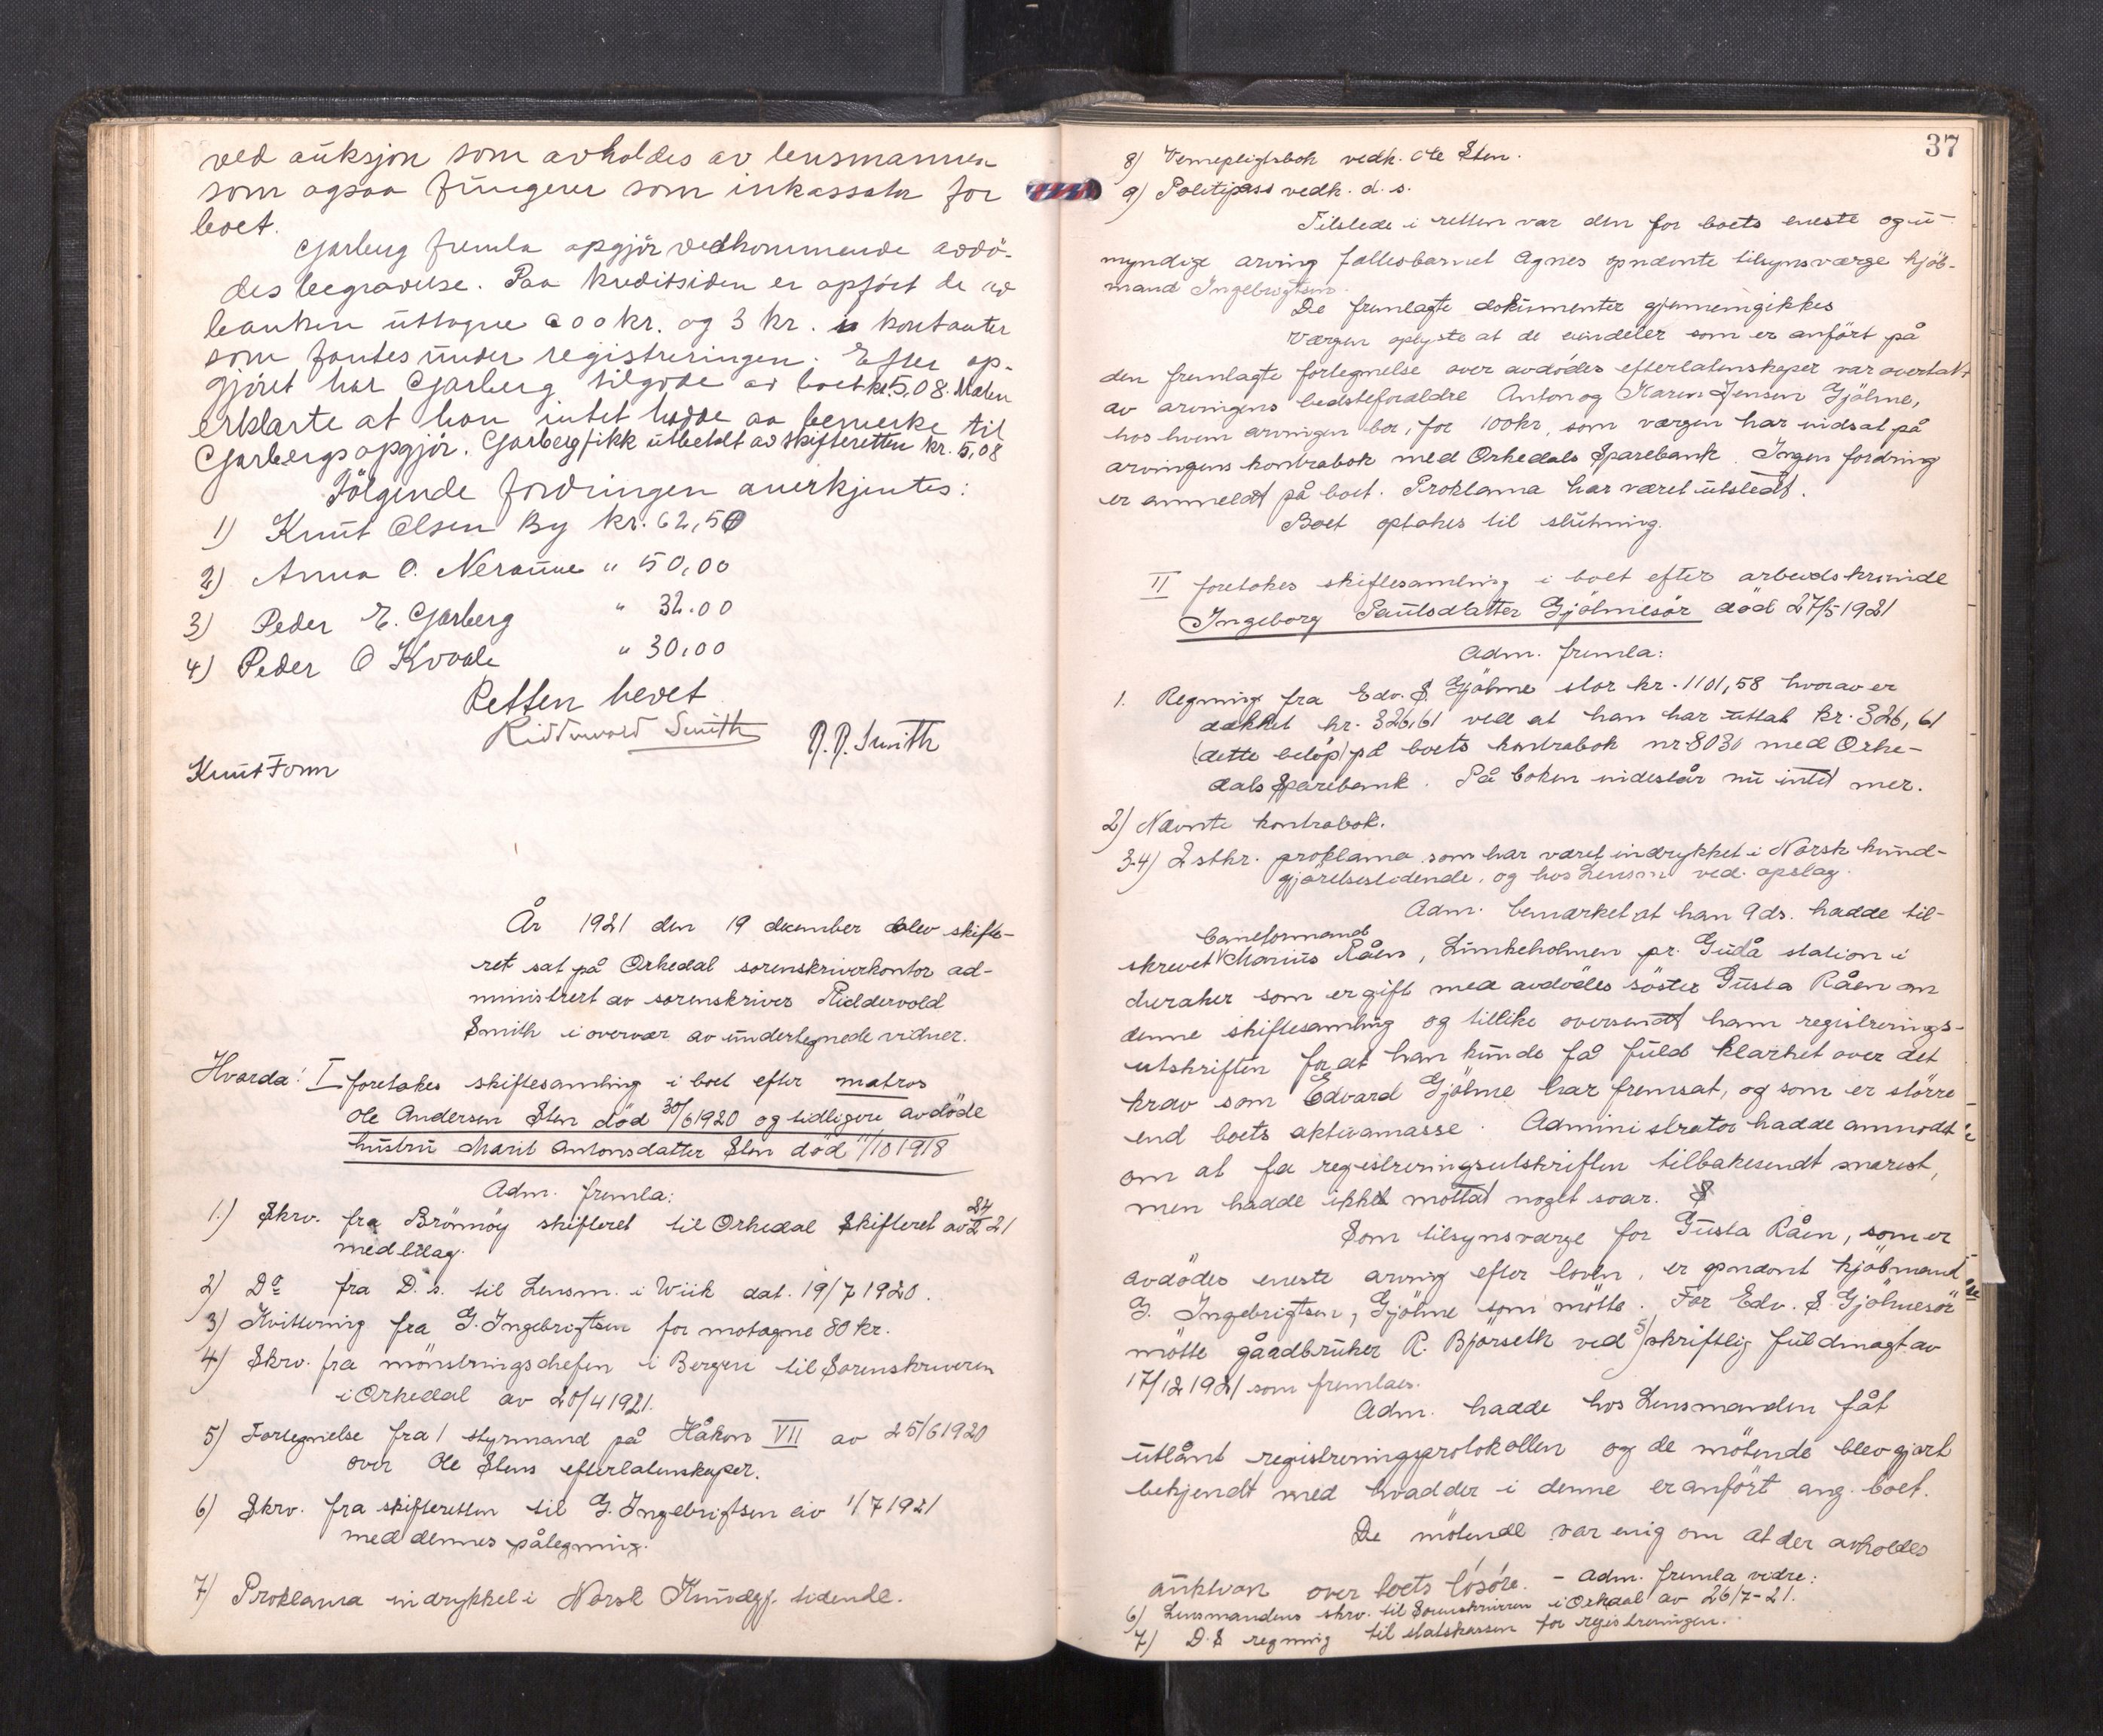 ved auksjon som avholdes av lensmannen
som ogsaa fungerer som inkassator for
boet.
Garberg fremla opgjör vedkommende avdö-
des begravelse. Paa kreditsiden er opfört de av
banken uttagne 600 kr. og 3 kr. i kontanter
som fantes under registreringen. Efter op-
gjöret har Garberg tilgode av boet kr. 5,08. Malen
erklærte at han intet hadde aa bemerke til
Garbergs opgjör. Garberg fikk utbetalt av skifteretten kr. 5,08
Fölgende fordringer anerkjentes:
1) Knut Olsen By kr. 62,50
2) Anna O. Neraune " 50,00
3) Peder E. Garberg " 32.00
4) Peder O Kvaale " 30,00
Retten hevet
Riddervold Smith
R. R. Smith
Knut Form
År 1921 den 19 december blev skifte-
ret sat på Orkedal sorenskriverkontor ad-
ministrert av sorenskriver Riddervold
Smith i overvær av undertegnede vidner.
Hvorda: I foretokes skiftesamling i boet efter matros
Ole Andersen Sten död 30/6 1920 og tidligere avdöde
hustru Marit Antonsdatter Sten död 11/10 1918
Adm. fremla:
1.) Skrv. fra Brönnöy skifteret til Orkedal Skifteret av 24/2 21
med bilag.
2) Do fra D. s. til Lensm. i Wiik dat. 19/7 1920.
3) Kvittering fra G. Ingebrigtsen for motagne 80 kr.
4) Skrv. fra mönstringschefen i Bergen til Sorenskriveren
i Orkedal av 20/4 1921.
5) Fortegnelse fra 1 styrmand på Håkon VII av 25/6 1920
over Ole Stens efterlatenskaper.
6) Skrv. fra skifteretten til G. Ingebrigtsen av 1/7 1921
med dennes pålegning.
7) Proklama indrykket i Norsk Kundgj. tidende.
37
8) Vernepligtsbok vedk. Ole Sten.
9) Politipass vedk. d. s.
Tilstede i retten var den for boets eneste og u-
myndige arving fællesbarnet Agnes opnævnte tilsynsværge kjöb-
mand Ingebrigtsen.
De fremlagte dokumenter gjennemgikkes
Værgen oplyste at de eiendeler som er anfört på
den fremlagte fortegnelse over avdödes efterlatenskaper var overtatt
av arvingens bedsteforældre Anton og Karen Jensen Gjölme,
hos hvem arvingen bor, for 100 kr, som værgen har indsat på
arvingens kontrabok med Orkedals Sparebank. Ingen fordring
er anmeldt på boet. Proklama har været utstedt.
Boet optokes til slutning.
II foretokes skiftesamling i boet efter arbeidskvinde
Ingeborg Paulsdatter Gjölmesör död 27/5 1921
Adm. fremla:
1. Regning fra Edv. S. Gjölme stor kr. 1101,58 hvorav er
dækket kr. 326,61 ved at han har uttat kr. 326,61
(dette belöp) på boets kontrabok nr 8030 med Orke-
dals Sparebank. På boken indestår nu intet mer.
2) Nævnte kontrabok.
3-4) 2 stkr. proklama som har været indrykket i Norsk kund-
gjörelsestidende, og hos Lensm ved opslag.
Adm. bemærket at han 9 ds. hadde til-
baneformand
skrevet Marius Råen, Linneholmen pr. Gudå station i
Meraker som er gift med avdödes söster Gusta Råen om
denne skiftesamling og tillike oversendt ham registrerings-
utskriften for at han kunde få fuld klarhet over det
krav som Edvard Gjölme har fremsat, og som er större
end boets aktivamasse. Administrator hadde anmodt
om at få registreringsutskriften tilbakesendt snarest,
men hadde ikke mottat noget svar.
Som tilsynsværge for Gusta Råen, som er
avdödes eneste arving efter loven, er opnævnt kjöbmand
G. Ingebrigtsen, Gjölme som mötte. For Edv. S. Gjölmesör
mötte gårdbruker R. Bjorseth ved 5) skriftlig fuldmagt av
17/12 1921 som fremlaes.
Adm. hadde hos Lensmanden fåt
utlånt registreringsprotokollen og de mötende blev gjort
bekjendt med hvad der i denne er anfört ang. boet.
De mötende var enig om at der avholdes
auktion over boets lösöre. – Adm. fremla vidre:
6) Lensmandens skrv. til Sorenskriveren i Orkdal av 26/7-21.
7) D. S regning til statskassen for registreringen.